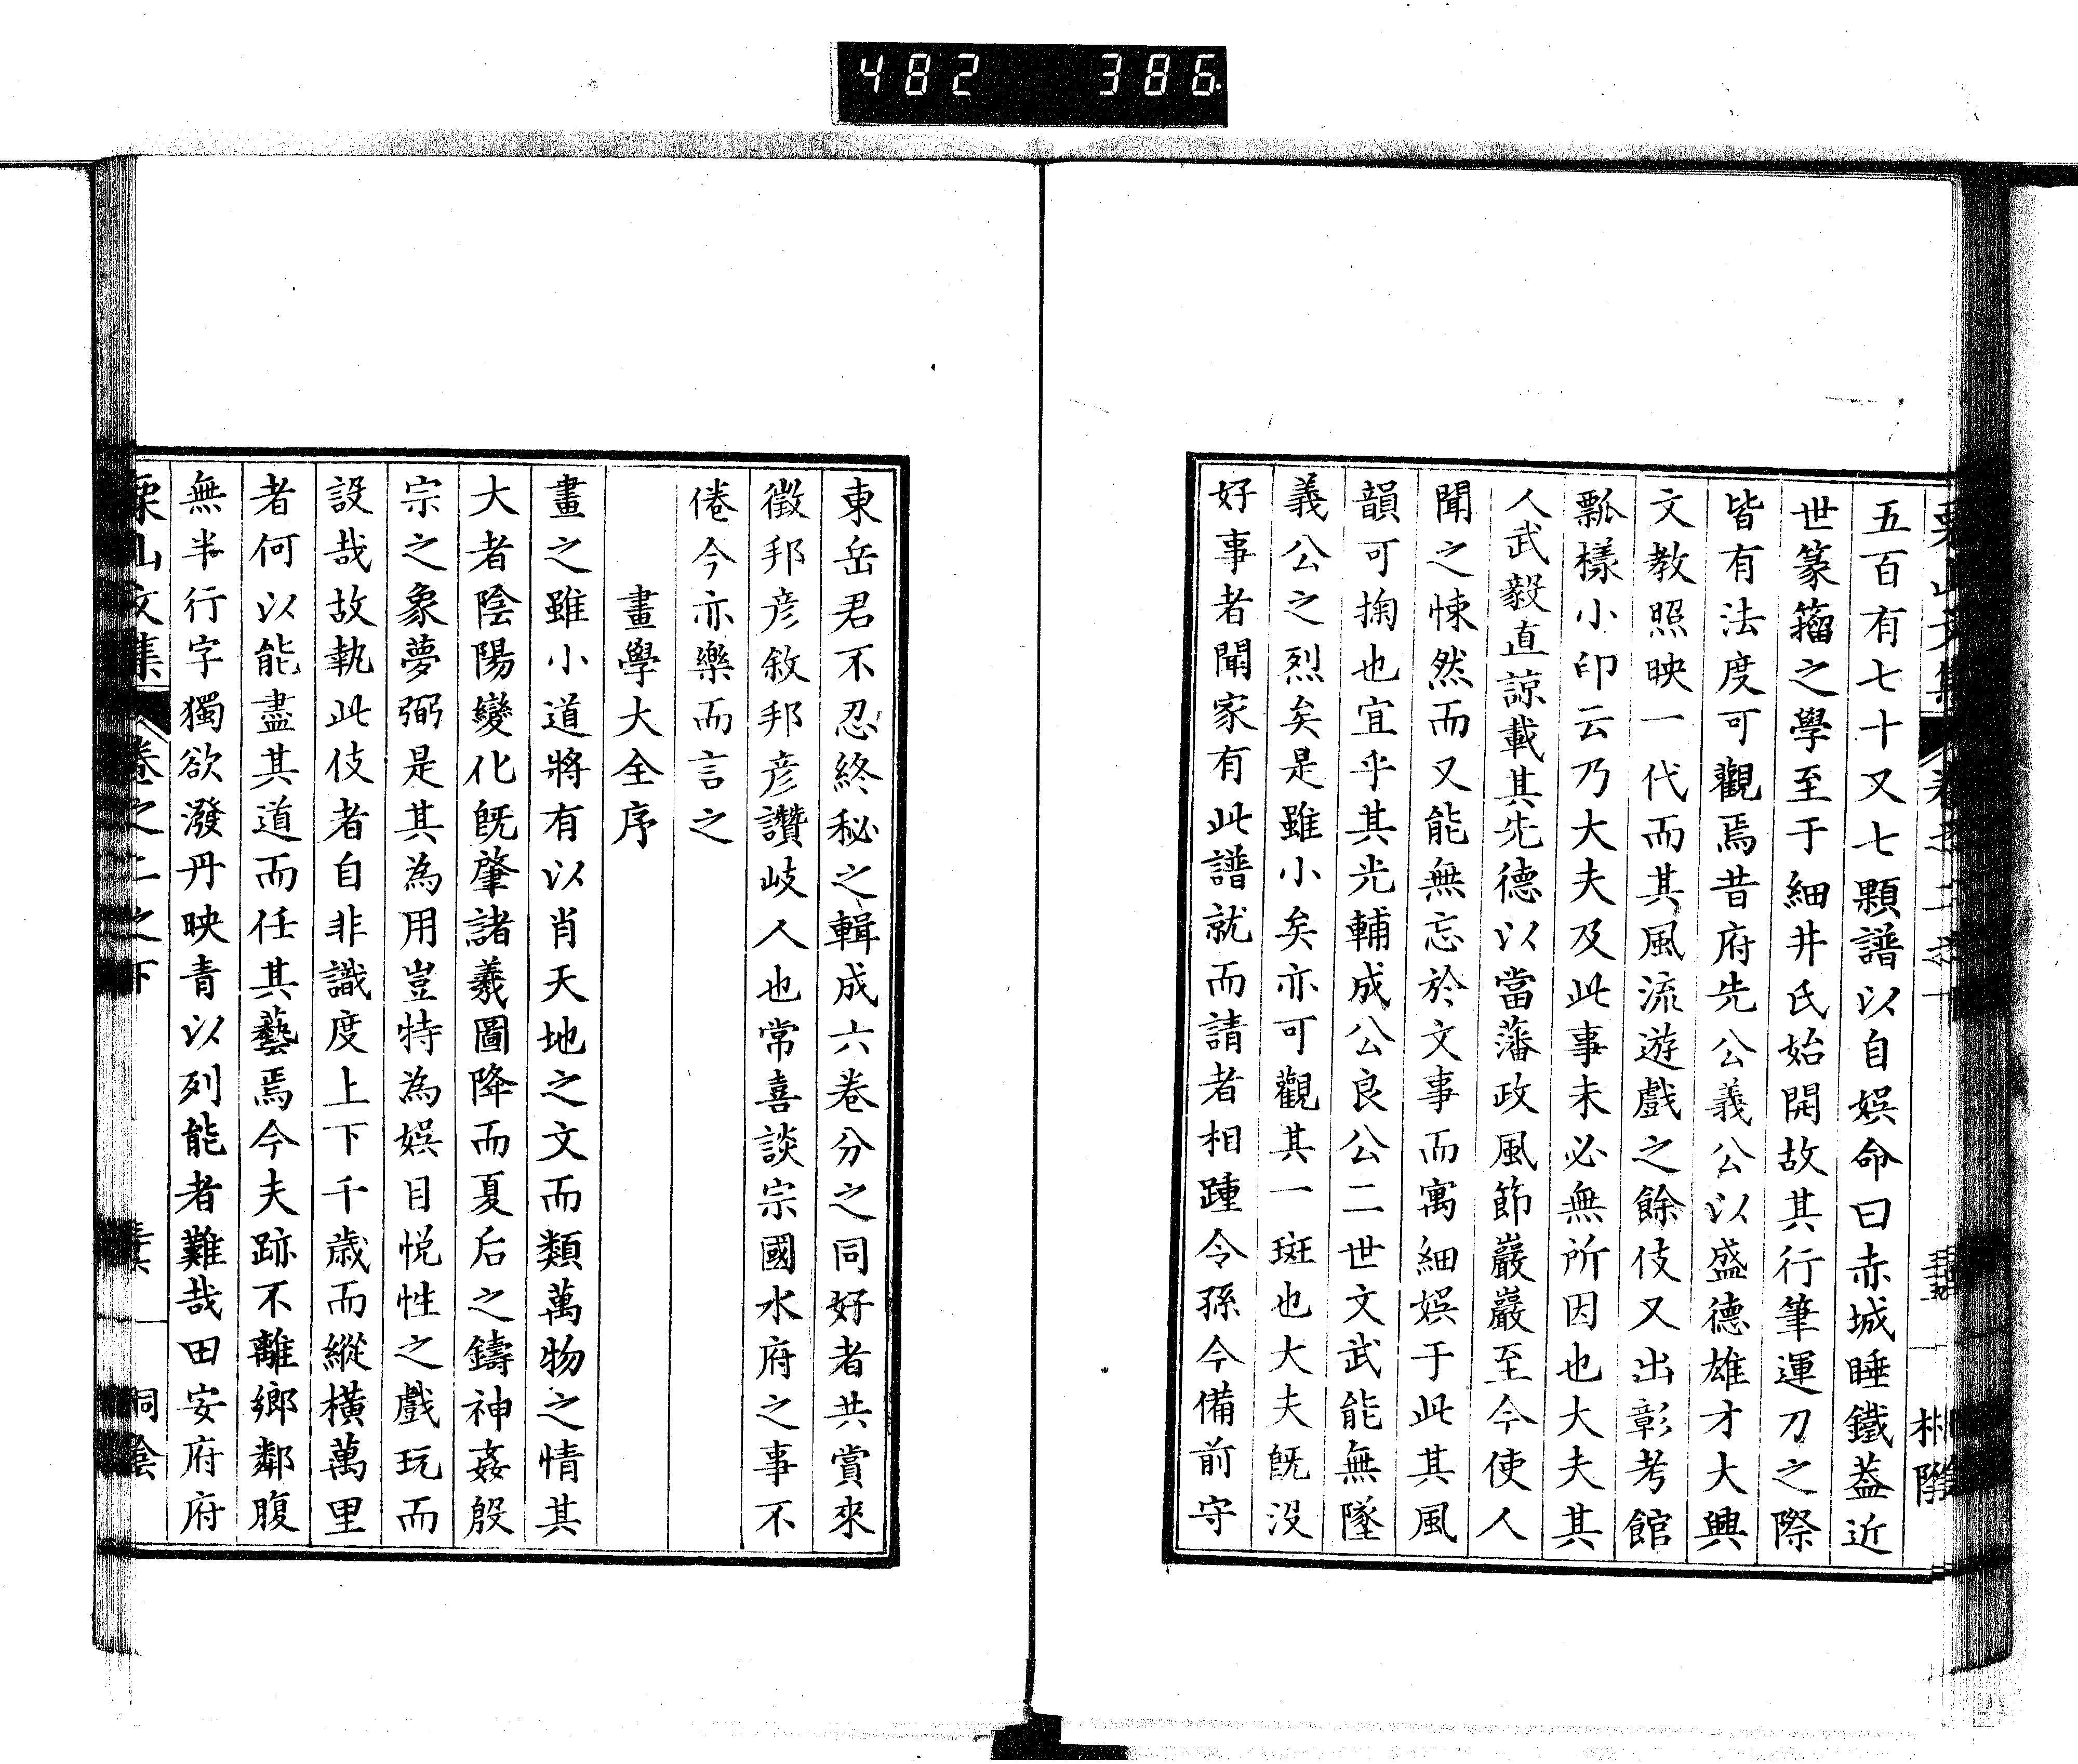 482 386
五百有七十又七顆譜以自娯命曰赤城睡鐵葢近
世篆籀之學至于細井氏始開故其行筆運刀之際
皆有法度可觀焉昔府先公義公以盛德雄才大興
文教照映一代而其風流遊戲之餘伎又出彰考館
瓢樣小印云乃大夫及此事未必無所因也大夫其
人武毅直諒載其先德以當藩政風節巖巖至今使人
聞之悚然而又能無忘於文事而寓細娯于此其風
韻可掬也宜乎其光輔成公良公二世文武能無墜
義公之烈矣是雖小矣亦可觀其一斑也大夫既没
好事者聞家有此譜就而請者相踵令孫今備前守
東岳君不忍終秘之輯成六卷分之同好者共賞來
徵邦彦敘邦彦讚岐人也常喜談宗國水府之事不
倦今亦樂而言之
畫學大全序
畫之雖小道將有以肖天地之文而類萬物之情其
大者陰陽變化既肇諸羲圖降而夏后之鑄神姦殷
宗之象夢弼是其為用豈特為娯目悦性之戲玩而
設哉故執此伎者自非識度上下千歳而縱橫萬里
者何以能盡其道而任其藝焉今夫跡不離鄉鄰腹
無半行字獨欲潑丹映青以列能者難哉田安府府
栗山文集 卷之二之下